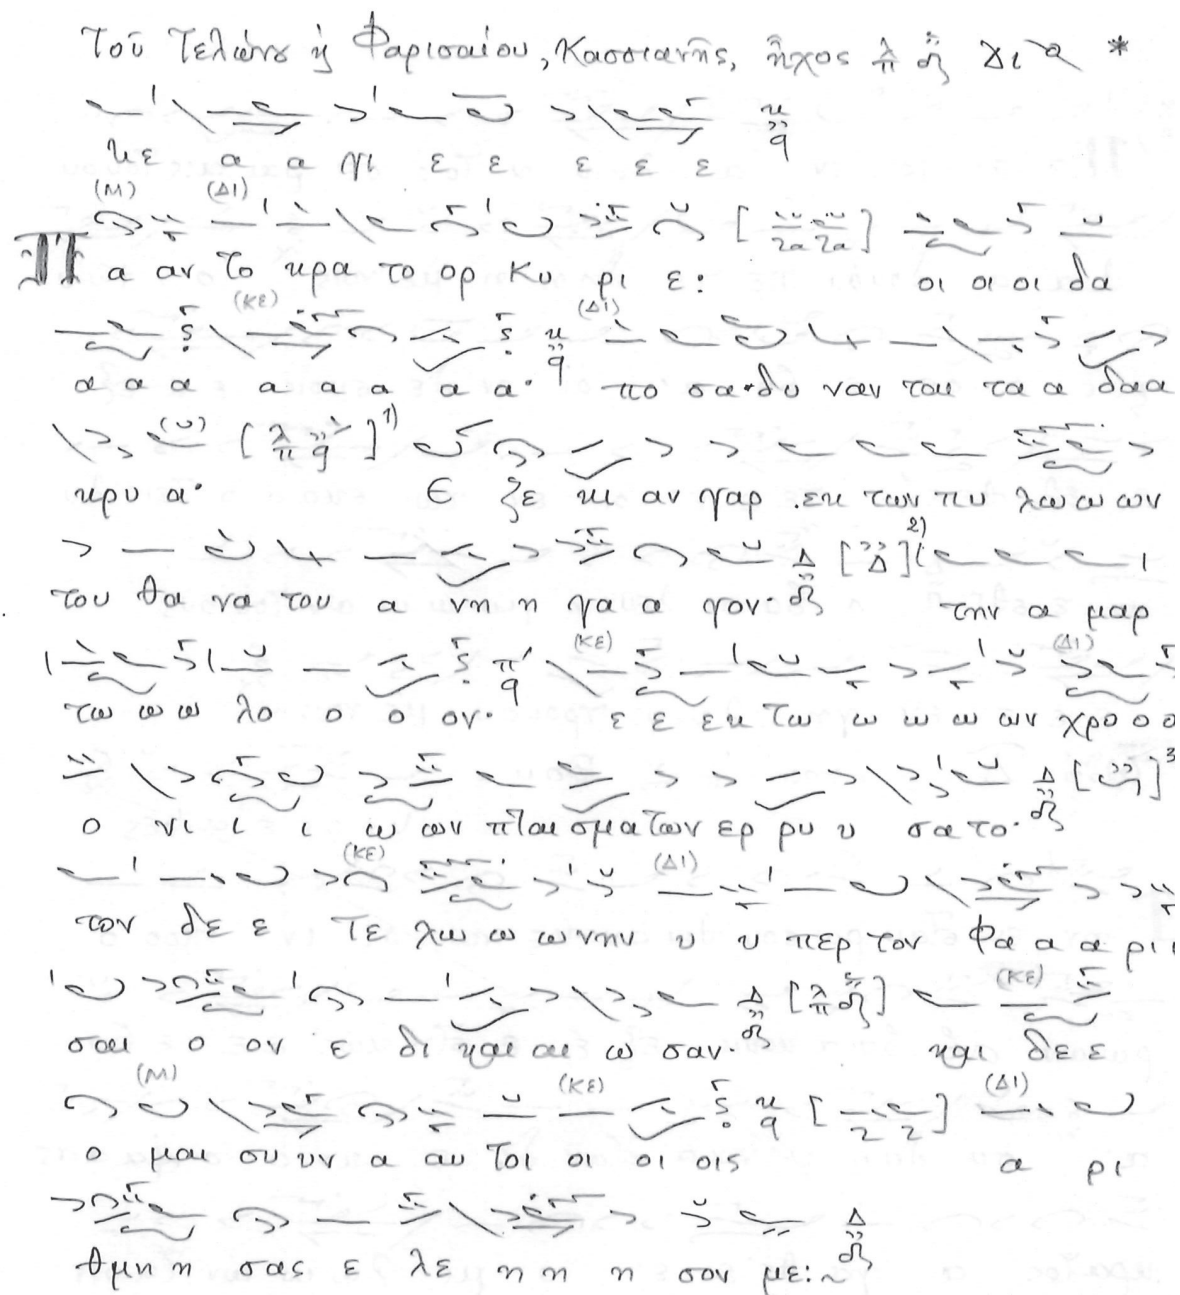 Τοῦ Τελώνου ϗ Φαρισαίου, Κασσιανῆς, ἦχος λ π δ Δι *
κε α α γι ε ε ε ε ε
(Μ) (ΔΙ)
Π α αν το κρα το ορ Κυ ρι ε: οι οι οι δα
(ΚΕ) (ΔΙ)
α α α α α α α α· πο σα δυ ναν ται τα α δαα
κρυ α· Ε ζε κι αν γαρ εκ των πυ λω ω ων
του θα να του α νη η γα α γον· την α μαρ
(ΚΕ) (ΔΙ)
τω ω ω λο ο ο ον· ε ε εκ τω ω ω ω ων χρο ο ο
ο νι ι ι ω ων πται σμα των ερ ρυ υ σα το·
(ΚΕ) (ΔΙ)
τον δε ε Τε λω ω ω νην υ υ περ τον Φα α α ρι ι
(ΚΕ)
σαι ο ον ε δι και αι ω σαν· και δε ε
(Μ) (ΚΕ) (ΔΙ)
ο μαι συ υν α αυ τοι οι οι οις α ρι
θμη η σας ε λε η η η σον με:~